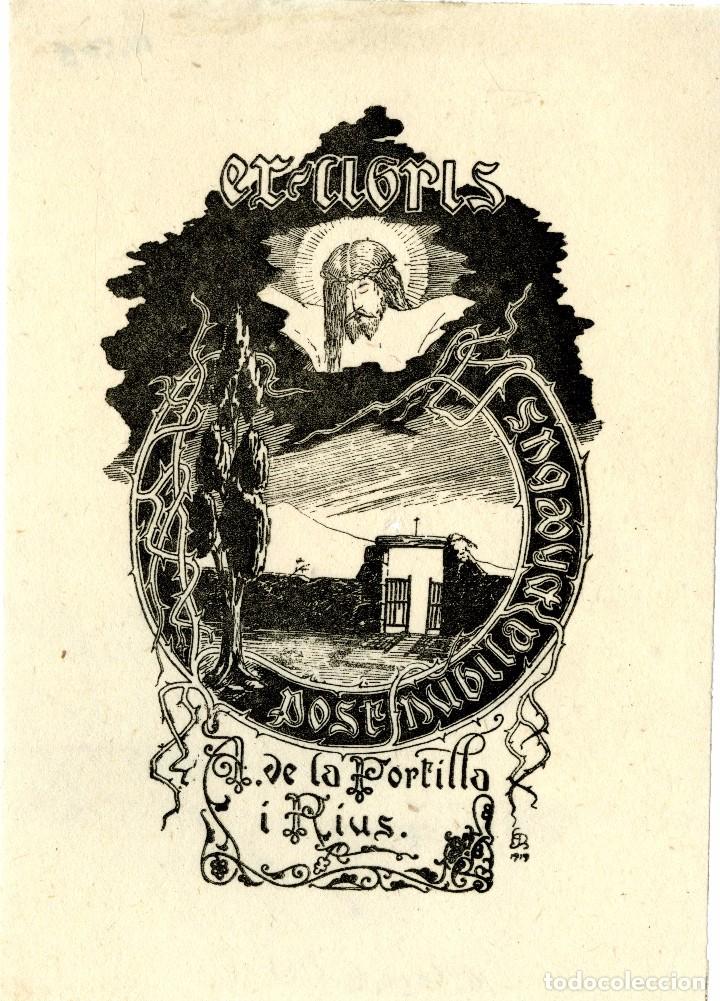 ex-libris
post nubila phoebus
A. de la Portilla
i Rius.
1919
todocoleccion